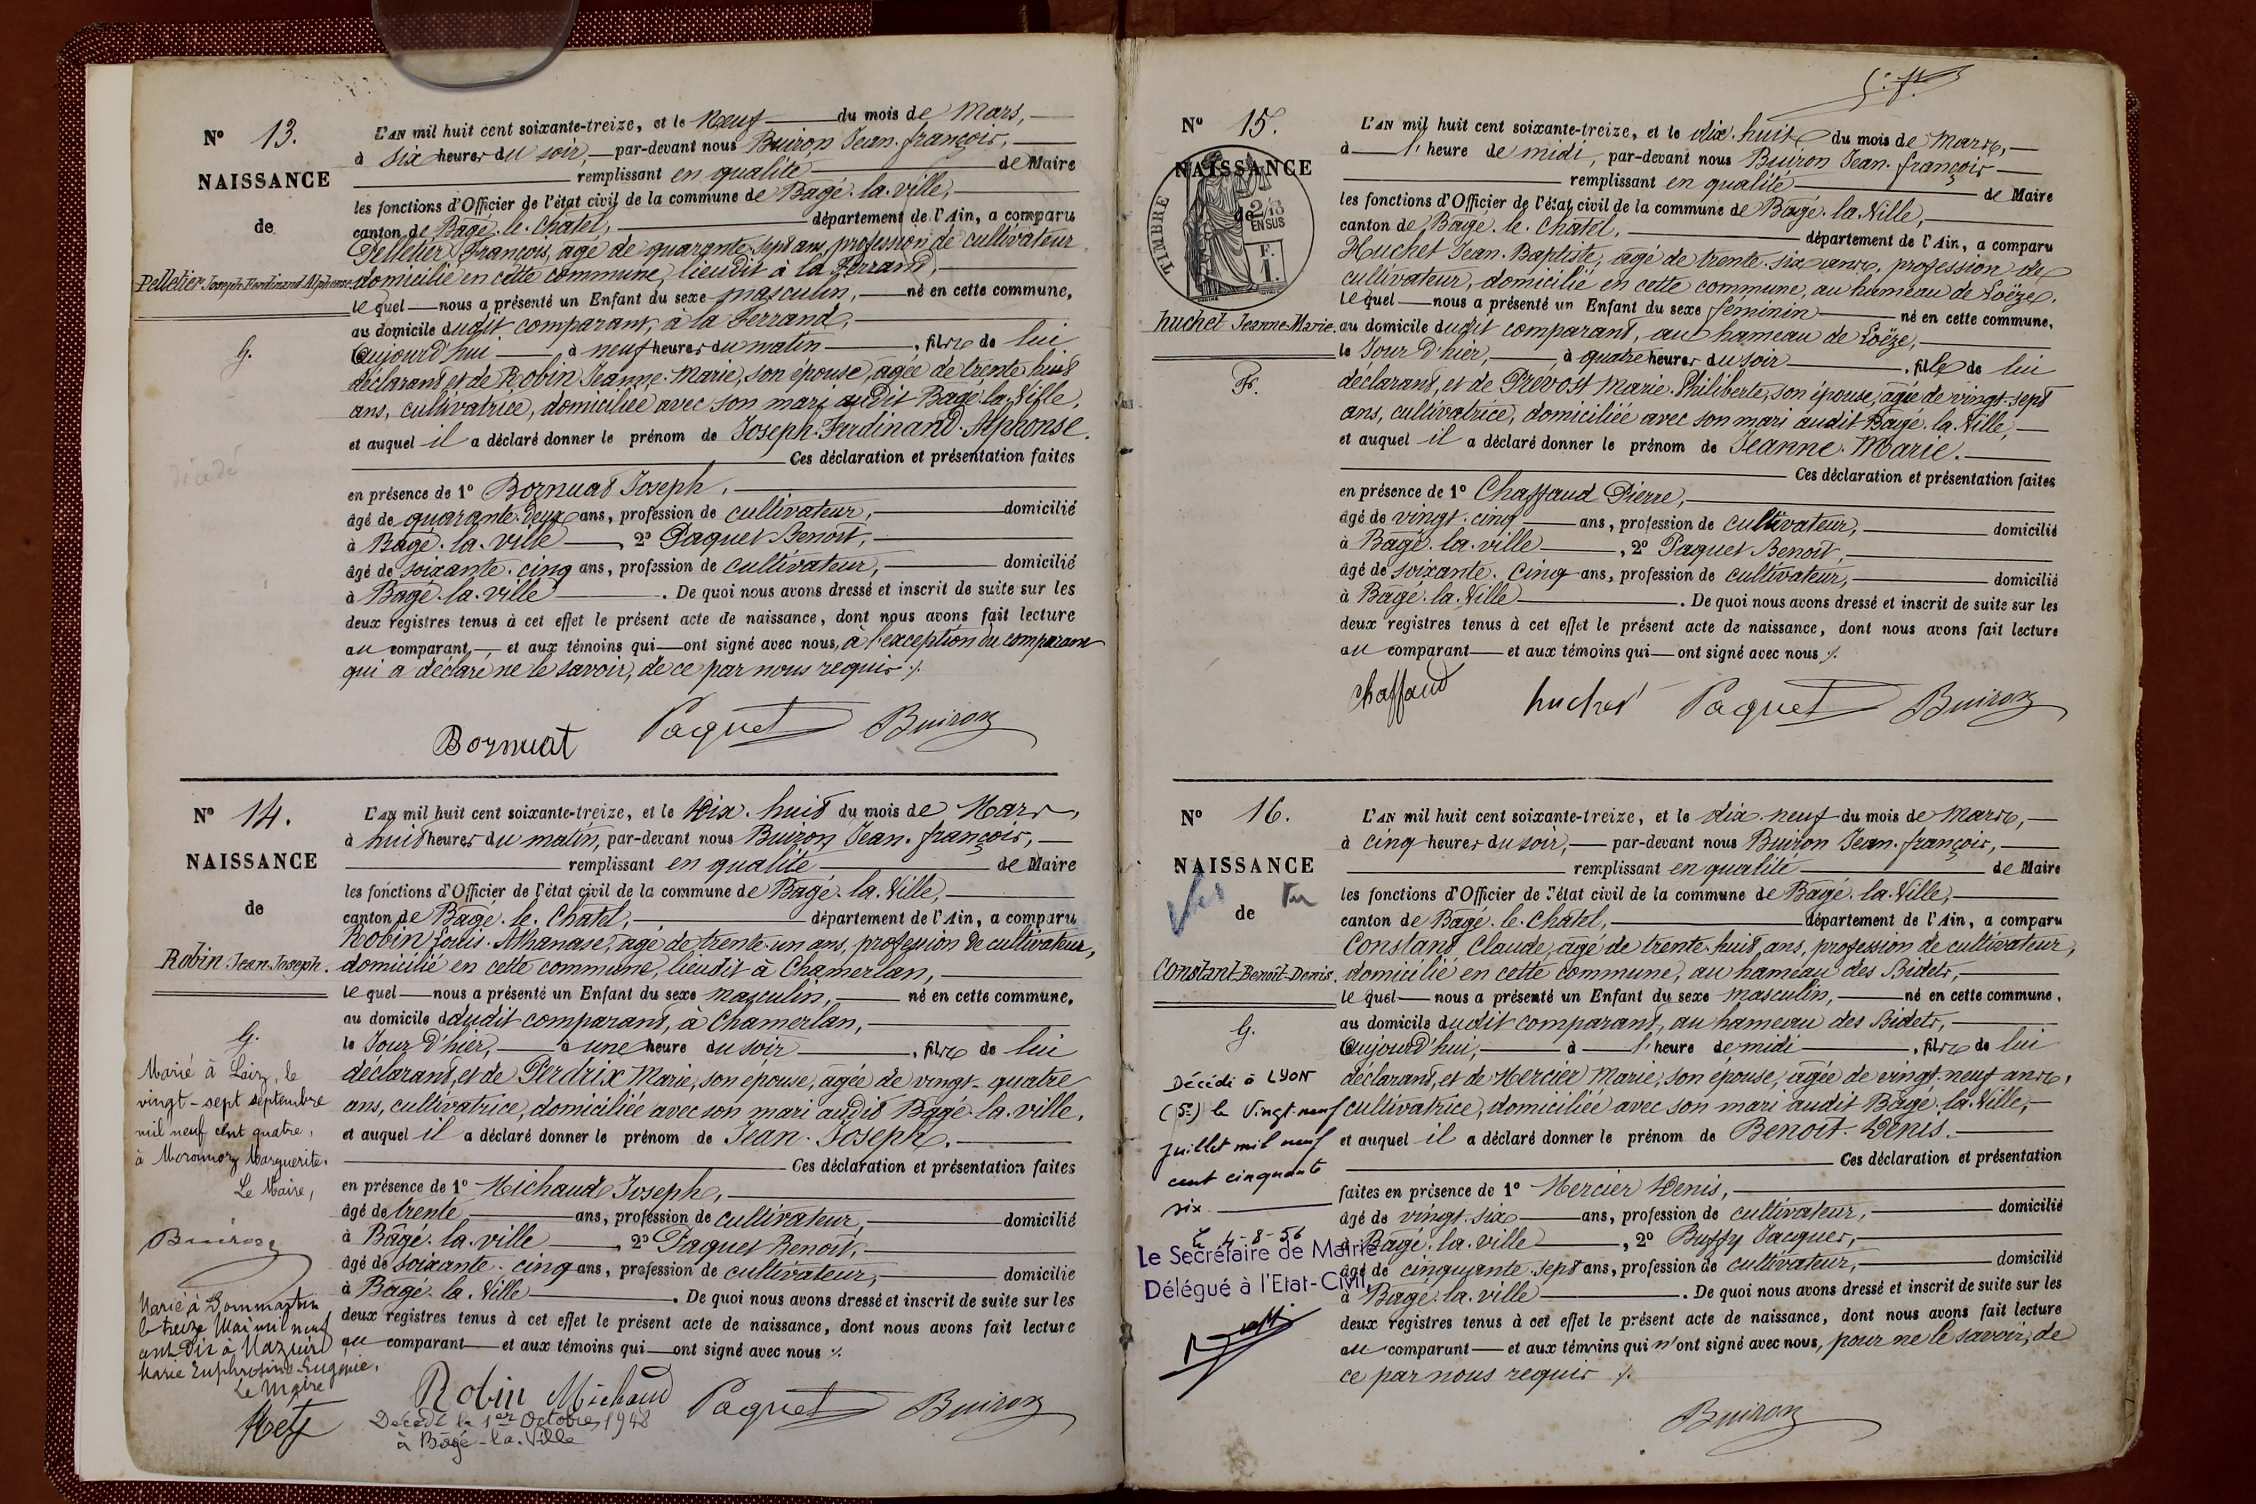 N° 13.
NAISSANCE
de
Pelletier Joseph Ferdinand Alphonse
G.
décédé
L'AN mil huit cent soixante-treize, et le Neuf du mois de Mars,
à six heures du soir, par-devant nous Buiron Jean-françois,
remplissant en qualité de Maire
les fonctions d'Officier de l'état civil de la commune de Bagé-la-ville,
canton de Bagé-le-Chatel, département de l'Ain, a comparu
Pelletier François, agé de quarante-sept ans, profession de cultivateur
domicilié en cette commune, lieudit à la Ferrand,
le quel nous a présenté un Enfant du sexe masculin, né en cette commune,
au domicile dudit comparant, à la Ferrand,
Aujourd'hui à neuf heures du matin, fils de lui
déclarant, et de Robin Jeanne-Marie, son épouse, agée de trente huit
ans, cultivatrice, domiciliée avec son mari audit Bagé-la-Ville,
et auquel il a déclaré donner le prénom de Joseph-Ferdinand-Alphonse.
Ces déclaration et présentation faites
en présence de 1° Bornuat Joseph,
âgé de quarante-deux ans, profession de cultivateur, domicilié
à Bagé-la-ville, 2° Paquet Benoît,
âgé de soixante-cinq ans, profession de cultivateur, domicilié
à Bagé-la-ville. De quoi nous avons dressé et inscrit de suite sur les
deux registres tenus à cet effet le présent acte de naissance, dont nous avons fait lecture
au comparant, et aux témoins qui ont signé avec nous, à l'exception du comparant
qui a déclaré ne le savoir, de ce par nous requis ./.
Bornuat Paquet Buiron
N° 14.
NAISSANCE
de
Robin Jean-Joseph.
G.
Marié à Laiz, le
vingt-sept septembre
mil neuf cent quatre,
à Marguerite.
Le Maire,
Buiron
Marié à Dommartin
le treize Mai mil neuf
cent dix à Mazuir
Marie Euphrosine Eugénie,
Le Maire
L'AN mil huit cent soixante-treize, et le Dix-huit du mois de Mars,
à huit heures du matin, par-devant nous Buiron Jean-françois,
remplissant en qualité de Maire
les fonctions d'Officier de l'état civil de la commune de Bagé-la-Ville,
canton de Bagé-le-Chatel, département de l'Ain, a comparu
Robin Louis-Athanase, agé de trente-un ans, profession de cultivateur,
domicilié en cette commune, lieudit à Chamerlan,
le quel nous a présenté un Enfant du sexe masculin, né en cette commune,
au domicile dudit comparant, à Chamerlan,
le Jour d'hier, à une heure du soir, fils de lui
déclarant, et de Perdrix Marie, son épouse, agée de vingt-quatre
ans, cultivatrice, domiciliée avec son mari audit Bagé-la-ville,
et auquel il a déclaré donner le prénom de Jean-Joseph.
Ces déclaration et présentation faites
en présence de 1° Michaud Joseph,
âgé de trente ans, profession de cultivateur, domicilié
à Bagé-la-ville, 2° Paquet Benoît,
âgé de soixante-cinq ans, profession de cultivateur, domicilié
à Bagé-la-Ville. De quoi nous avons dressé et inscrit de suite sur les
deux registres tenus à cet effet le présent acte de naissance, dont nous avons fait lecture
au comparant et aux témoins qui ont signé avec nous ./.
Robin Michaud Paquet Buiron
Décédé le 1er Octobre 1948
à Bâgé-la-Ville
N° 15.
NAISSANCE
de
TIMBRE
2/10
EN SUS
F.
1.
huchet Jeanne-Marie.
Fs.
L'AN mil huit cent soixante-treize, et le dix-huit du mois de Mars,
à l'heure de midi, par-devant nous Buiron Jean-françois
remplissant en qualité de Maire
les fonctions d'Officier de l'état civil de la commune de Bagé-la-Ville,
canton de Bagé-le-Chatel, département de l'Ain, a comparu
Huchet Jean-Baptiste, agé de trente-six ans, profession de
cultivateur, domicilié en cette commune, au hameau de Loëze,
le quel nous a présenté un Enfant du sexe féminin né en cette commune,
au domicile dudit comparant, au hameau de Loëze,
le Jour d'hier, à quatre heures du soir, fille de lui
déclarant, et de Prévost Marie-Philiberte, son épouse, agée de vingt-sept
ans, cultivatrice, domiciliée avec son mari audit Bagé-la-Ville,
et auquel il a déclaré donner le prénom de Jeanne-Marie.
Ces déclaration et présentation faites
en présence de 1° Chaffaud Pierre,
âgé de vingt-cinq ans, profession de cultivateur, domicilié
à Bagé-la-ville, 2° Paquet Benoît,
âgé de soixante-cinq ans, profession de cultivateur, domicilié
à Bagé-la-Ville. De quoi nous avons dressé et inscrit de suite sur les
deux registres tenus à cet effet le présent acte de naissance, dont nous avons fait lecture
au comparant et aux témoins qui ont signé avec nous ./.
Chaffaud huchet Paquet Buiron
N° 16.
NAISSANCE
de
Constant Benoît-Denis.
G.
Décédé à LYON
(5e) le Vingt-neuf
juillet mil neuf
cent cinquante
six
Le 4-8-56
Le Secrétaire de Mairie
Délégué à l'Etat-Civil,
L'AN mil huit cent soixante-treize, et le dix-neuf du mois de Mars,
à cinq heures du soir, par-devant nous Buiron Jean-françois,
remplissant en qualité de Maire
les fonctions d'Officier de l'état civil de la commune de Bagé-la-Ville,
canton de Bagé-le-Chatel, département de l'Ain, a comparu
Constant Claude, agé de trente-huit ans, profession de cultivateur,
domicilié en cette commune, au hameau des Bidets,
le quel nous a présenté un Enfant du sexe masculin, né en cette commune,
au domicile dudit comparant, au hameau des Bidets,
Aujourd'hui, à l'heure de midi, fils de lui
déclarant, et de Mercier Marie, son épouse, agée de vingt-neuf ans,
cultivatrice, domiciliée avec son mari audit Bagé-la-Ville,
et auquel il a déclaré donner le prénom de Benoît-Denis.
Ces déclaration et présentation
faites en présence de 1° Mercier Denis,
âgé de vingt-six ans, profession de cultivateur, domicilié
à Bagé-la-ville, 2° Buffy Jacques,
âgé de cinquante-sept ans, profession de cultivateur, domicilié
à Bagé-la-ville. De quoi nous avons dressé et inscrit de suite sur les
deux registres tenus à cet effet le présent acte de naissance, dont nous avons fait lecture
au comparant et aux témoins qui n'ont signé avec nous, pour ne le savoir, de
ce par nous requis ./.
Buiron